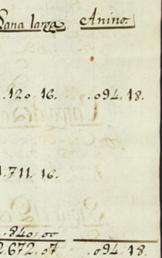 Lana larga. Anino.
.120.16. .094.18.
1.711.16.
.840.00
2.672.07 .094.18.